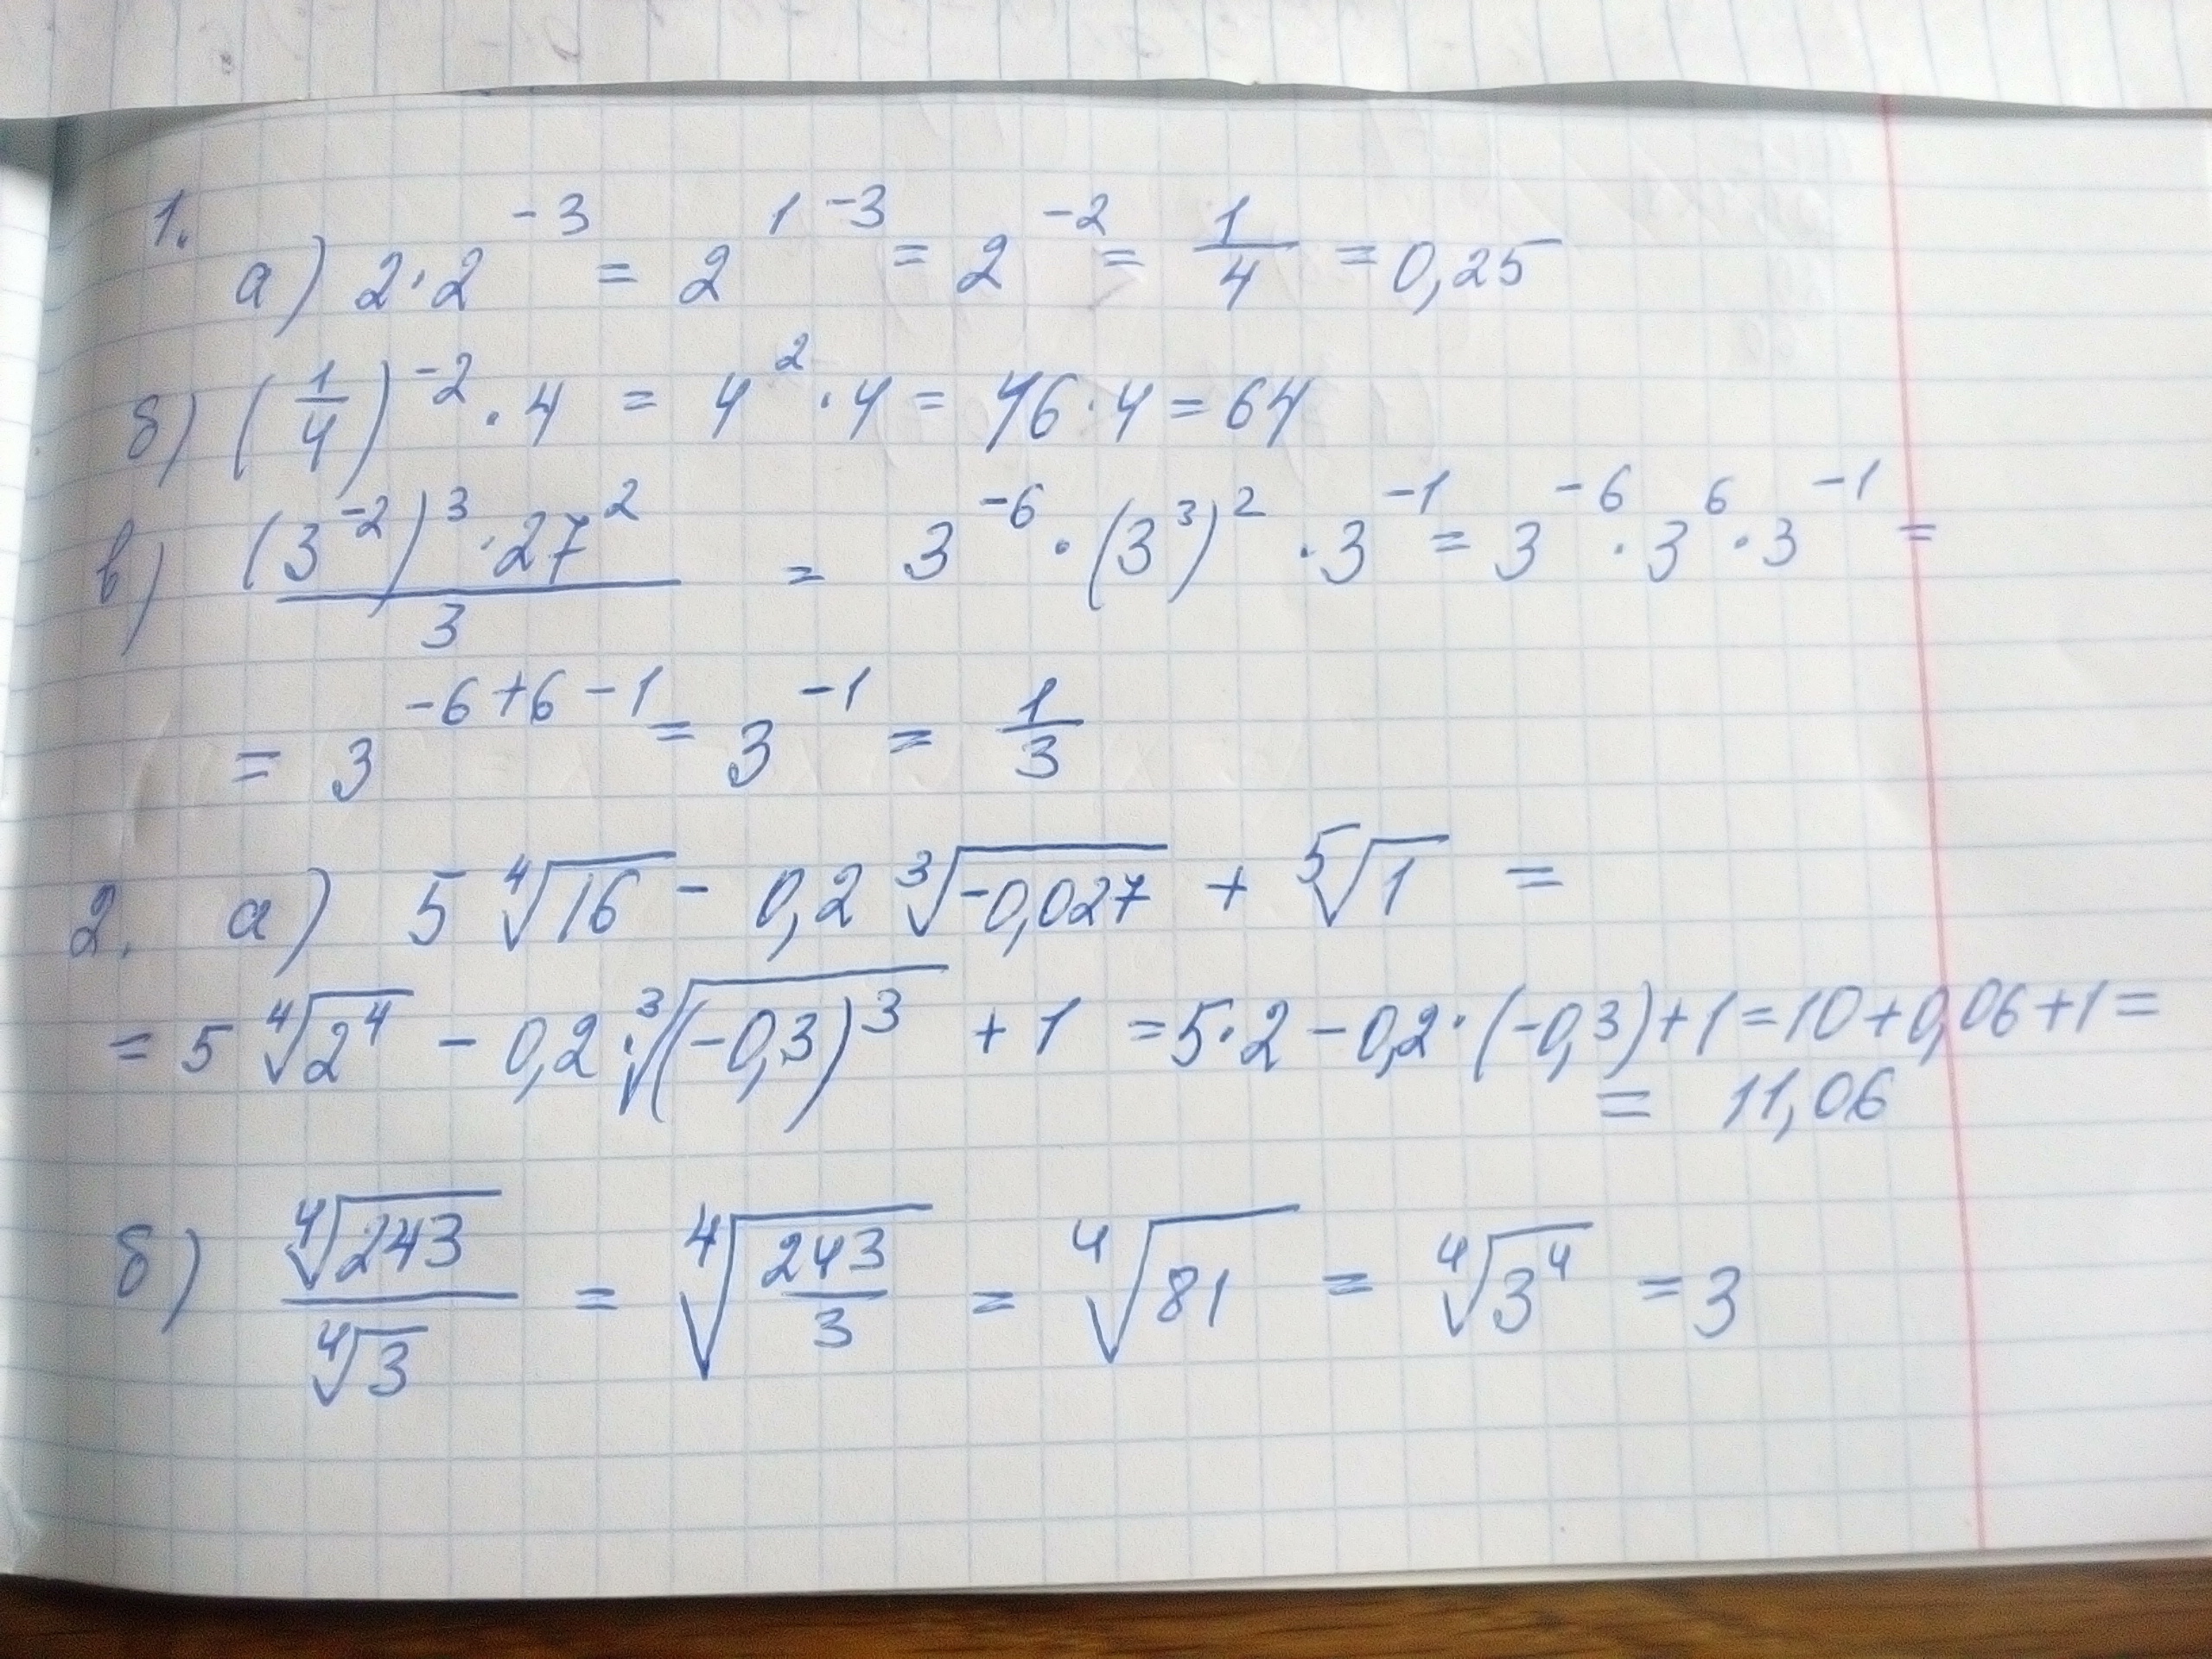 1.
а) 2·2⁻³ = 2¹⁻³ = 2⁻² = 1/4 = 0,25
б) (1/4)⁻² · 4 = 4² · 4 = 16 · 4 = 64
в) (3⁻²)³ · 27² / 3 = 3⁻⁶ · (3³)² · 3⁻¹ = 3⁻⁶ · 3⁶ · 3⁻¹ =
= 3⁻⁶⁺⁶⁻¹ = 3⁻¹ = 1/3
2. а) 5 ⁴√16 - 0,2 ³√-0,027 + ⁵√1 =
= 5 ⁴√2⁴ - 0,2 · ³√(-0,3)³ + 1 = 5·2 - 0,2 · (-0,3) + 1 = 10 + 0,06 + 1 =
= 11,06
б) ⁴√243 / ⁴√3 = ⁴√(243/3) = ⁴√81 = ⁴√3⁴ = 3